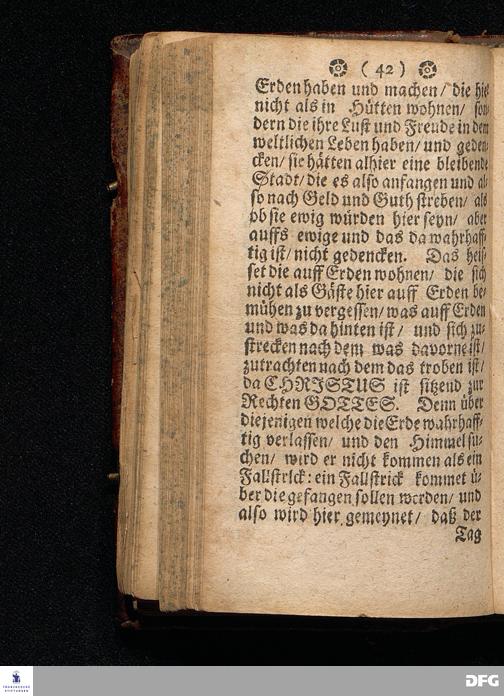 ( 42 )
Erden haben und machen/ die hie
nicht als in Hütten wohnen/ son
dern die ihre Lust und Freude in dem
weltlichen Leben haben/ und geden
cken/ sie hätten alhier eine bleibende
Stadt/ die es also anfangen und al
so nach Geld und Guth streben/ als
ob sie ewig würden hier seyn/ aber
auffs ewige und das da wahrhaff-
tig ist/ nicht gedencken. Das heis-
set die auff Erden wohnen/ die sich
nicht als Gäste hier auff Erden be-
mühen zu vergessen/ was auff Erden
und was da hinten ist/ und sich zu-
strecken nach dem was davorne ist/
zutrachten nach dem das troben ist/
da CHRISTUS ist sitzend zur
Rechten GOTTES. Denn über
diejenigen welche die Erde wahrhaff-
tig verlassen/ und den Himmel su-
chen/ wird er nicht kommen als ein
Fallstrick: ein Fallstrick kommet ü-
ber die gefangen sollen werden/ und
also wird hier gemeynet/ daß der
Tag
FRANCKESCHE
STIFTUNGEN
DFG